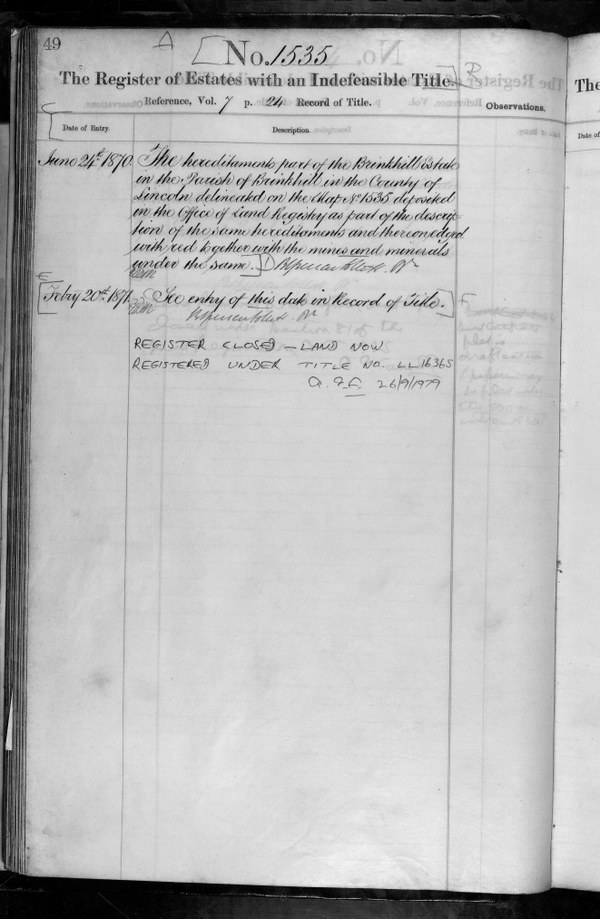 49
A [No. 1535
The Register of Estates with an Indefeasible Title.] B
Reference, Vol. 7 p. 24 Record of Title.
Observations.
Date of Entry.
Description.
June 24th 1870.
The hereditaments part of the Brinkhill Estate
in the Parish of Brinkhill in the County of
Lincoln delineated on the Map No 1535 deposited
in the Office of Land Registry as part of the descrip-
tion of the same hereditaments and thereon edged
with red together with the mines and minerals
under the same.] D
E
[Febry 20th 1871.
See entry of this date in Record of Title.]
F
REGISTER CLOSED – LAND NOW
REGISTERED UNDER TITLE NO. LL16365
26/9/1979
The
Date of